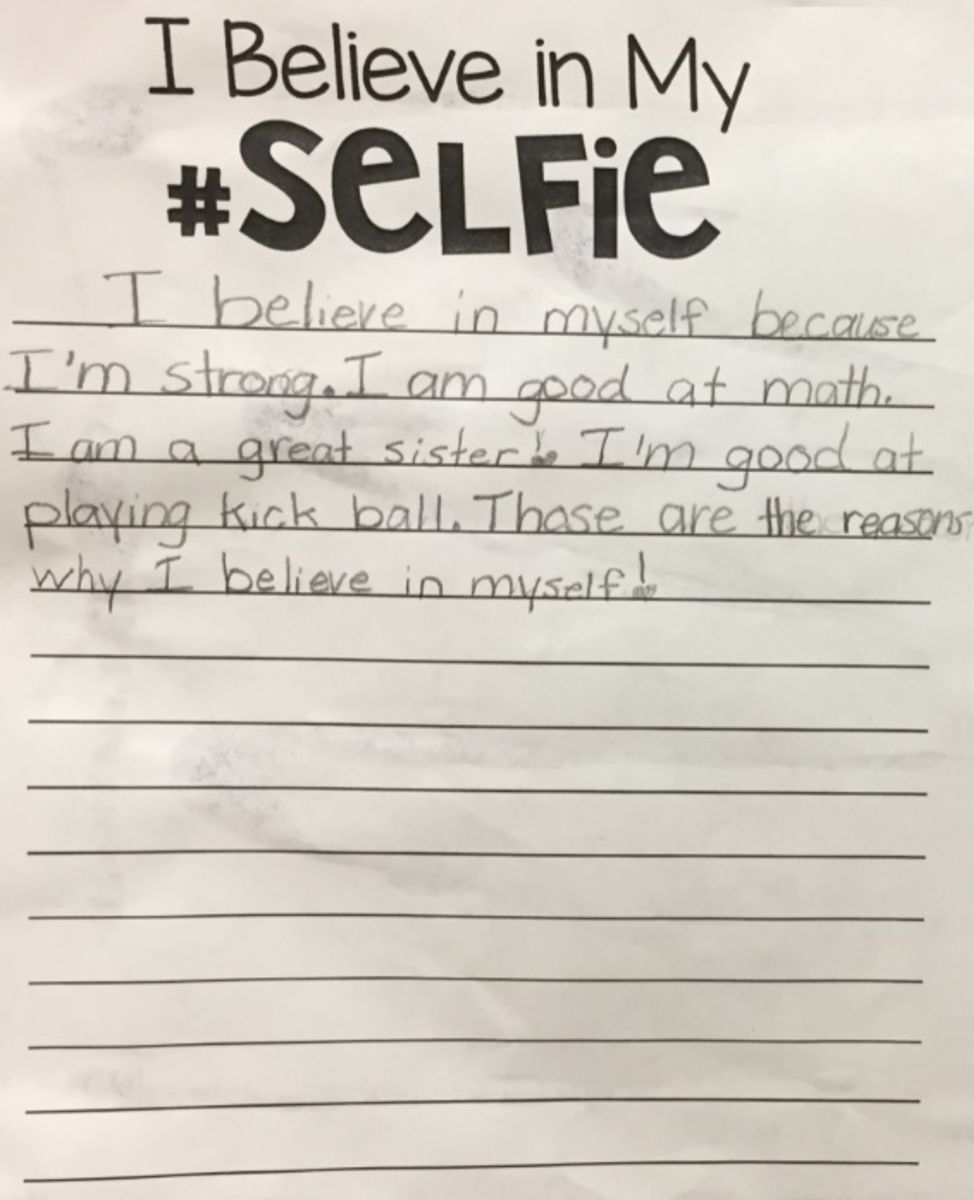 I Believe in My
#SELFie
I believe in myself because
I'm strong. I am good at math.
I am a great sister! I'm good at
playing kick ball. Those are the reasons
why I believe in myself!